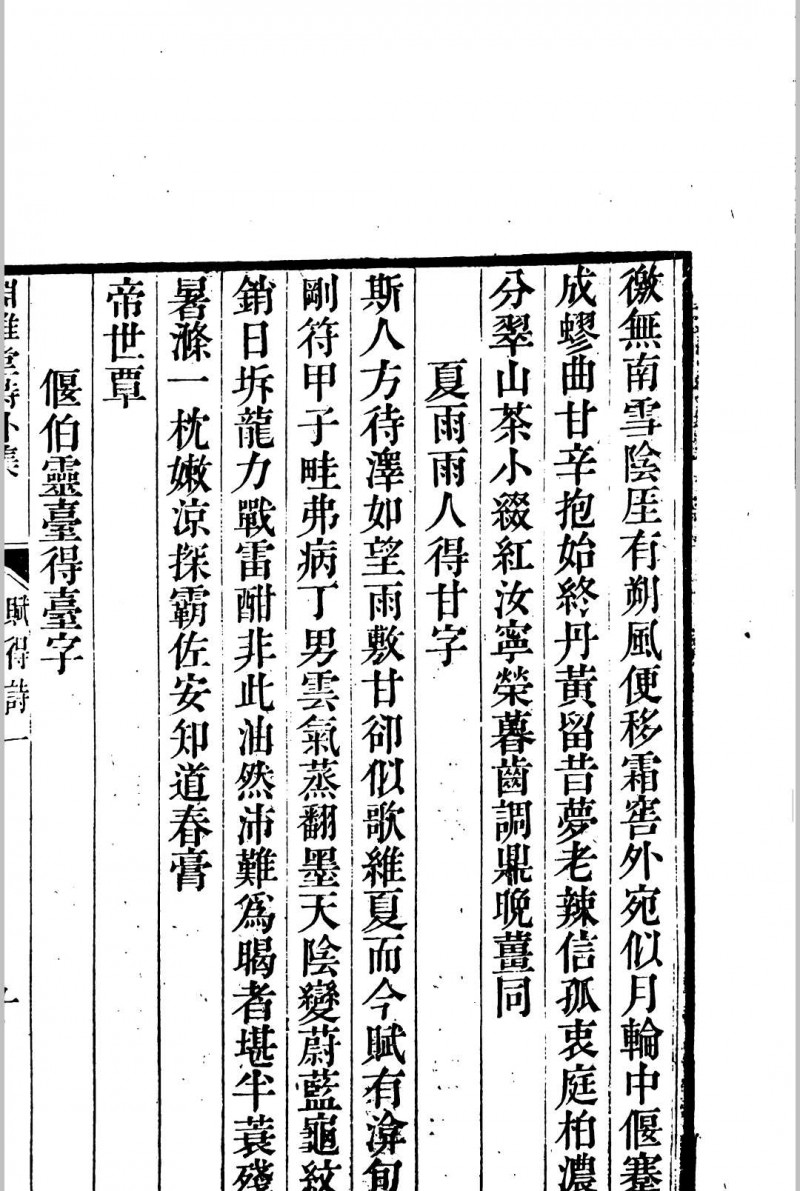 徼無南雪陰厓有朔風便移霜窖外宛似月輪中偃蹇
成蟉曲甘辛抱始終丹黃留昔夢老辣信孤衷庭柏濃
分翠山茶小綴紅汝寧榮暮齒調鼎晚薑同
夏雨雨人得甘字
斯人方待澤如望雨敷甘卻似歌維夏而今賦有渰旬
剛符甲子畦弗病丁男雲氣蒸翻墨天陰變蔚藍龜紋
銷日坼龍力戰雷酣非此油然沛難爲暍者堪半蓑殘
暑滌一枕嫩涼探霸佐安知道春膏
帝世覃
偃伯靈臺得臺字
賦得詩一